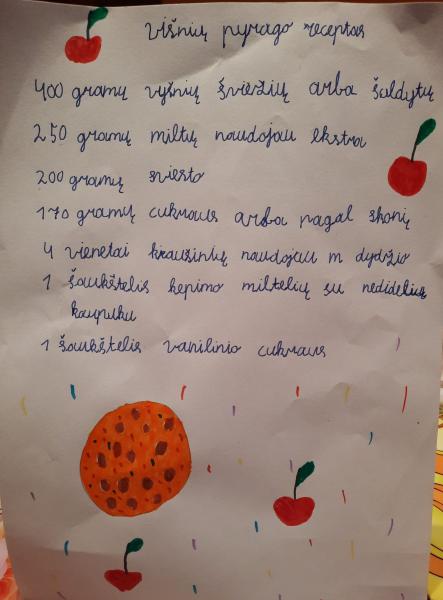 višnių pyrago receptas
400 gramų vyšnių šviežių arba šaldytų
250 gramų miltų naudojau ekstra
200 gramų sviesto
170 gramų cukraus arba pagal skonį
4 vienetai kiaušinių naudojau m dydžio
1 šaukštelis kepimo miltelių su nedideliu
kaupuku
1 šaukštelis vanilinio cukraus